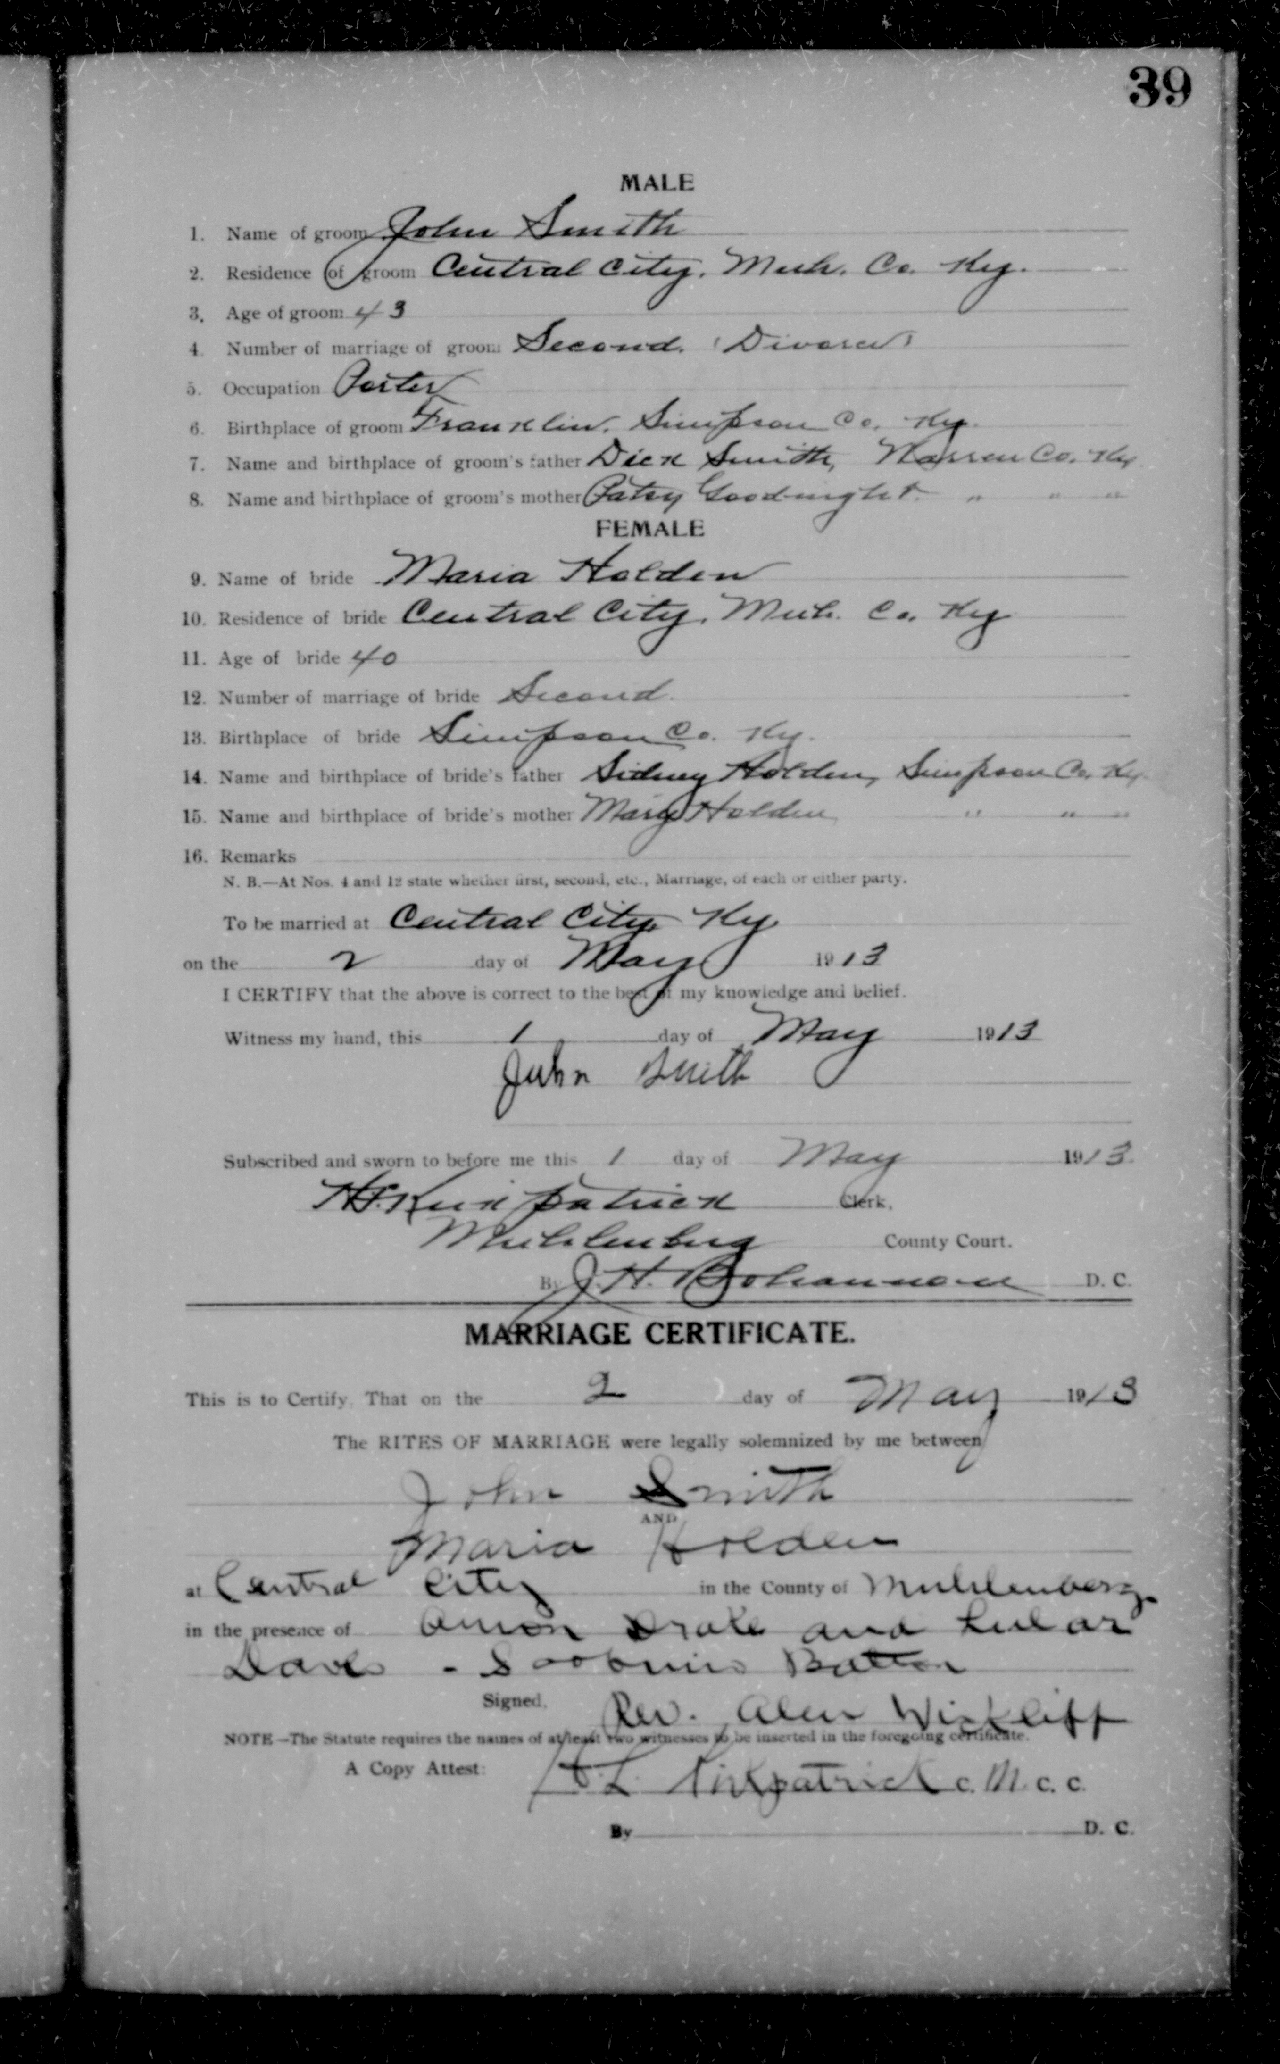 39
MALE
1. Name of groom John Smith
2. Residence of groom Central City, Muh. Co. Ky.
3. Age of groom 43
4. Number of marriage of groom Second. (Divorced)
5. Occupation Porter
6. Birthplace of groom Franklin, Simpson Co. Ky.
7. Name and birthplace of groom's father Dick Smith, Warren Co. Ky
8. Name and birthplace of groom's mother Patsy Goodnight. " " "
FEMALE
9. Name of bride Maria Holden
10. Residence of bride Central City, Muh. Co. Ky
11. Age of bride 40
12. Number of marriage of bride Second.
13. Birthplace of bride Simpson Co. Ky.
14. Name and birthplace of bride's father Sidney Holden, Simpson Co. Ky.
15. Name and birthplace of bride's mother Mary Holden " " "
16. Remarks
N. B.—At Nos. 4 and 12 state whether first, second, etc., Marriage, of each or either party.
To be married at Central City Ky
on the 2 day of May 1913
I CERTIFY that the above is correct to the best of my knowledge and belief.
Witness my hand, this 1 day of May 1913
John Smith
Subscribed and sworn to before me this 1 day of May 1913.
Kirkpatrick Clerk,
Muhlenberg County Court.
By J. H. Bohannon D. C.
MARRIAGE CERTIFICATE.
This is to Certify, That on the 2 day of May 1913
The RITES OF MARRIAGE were legally solemnized by me between
John Smith
AND
Maria Holden
at Central City in the County of Muhlenberg
in the presence of Amon Drake and Lular
Davis -
Signed, Rev. Alen Wickliff
NOTE—The Statute requires the names of at least two witnesses to be inserted in the foregoing certificate.
A Copy Attest: Kirkpatrick C. M. C. C.
By D. C.